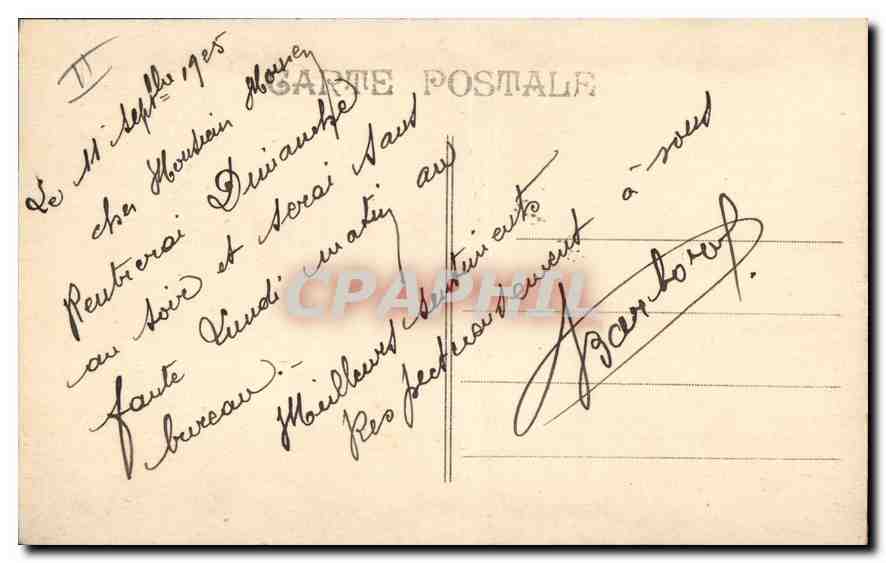 II
CARTE POSTALE
Le 11 Septbre 1925
cher Monsieur
Rentrerai Dimanche
au soir et serai sans
faute Lundi matin au
bureau.-
Meilleurs sentiments
Respectueusement à vous
CPAPHIL